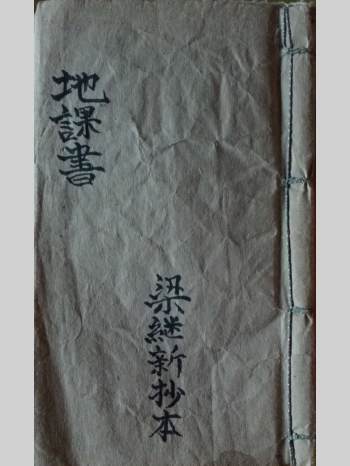 地課書
梁継新抄本